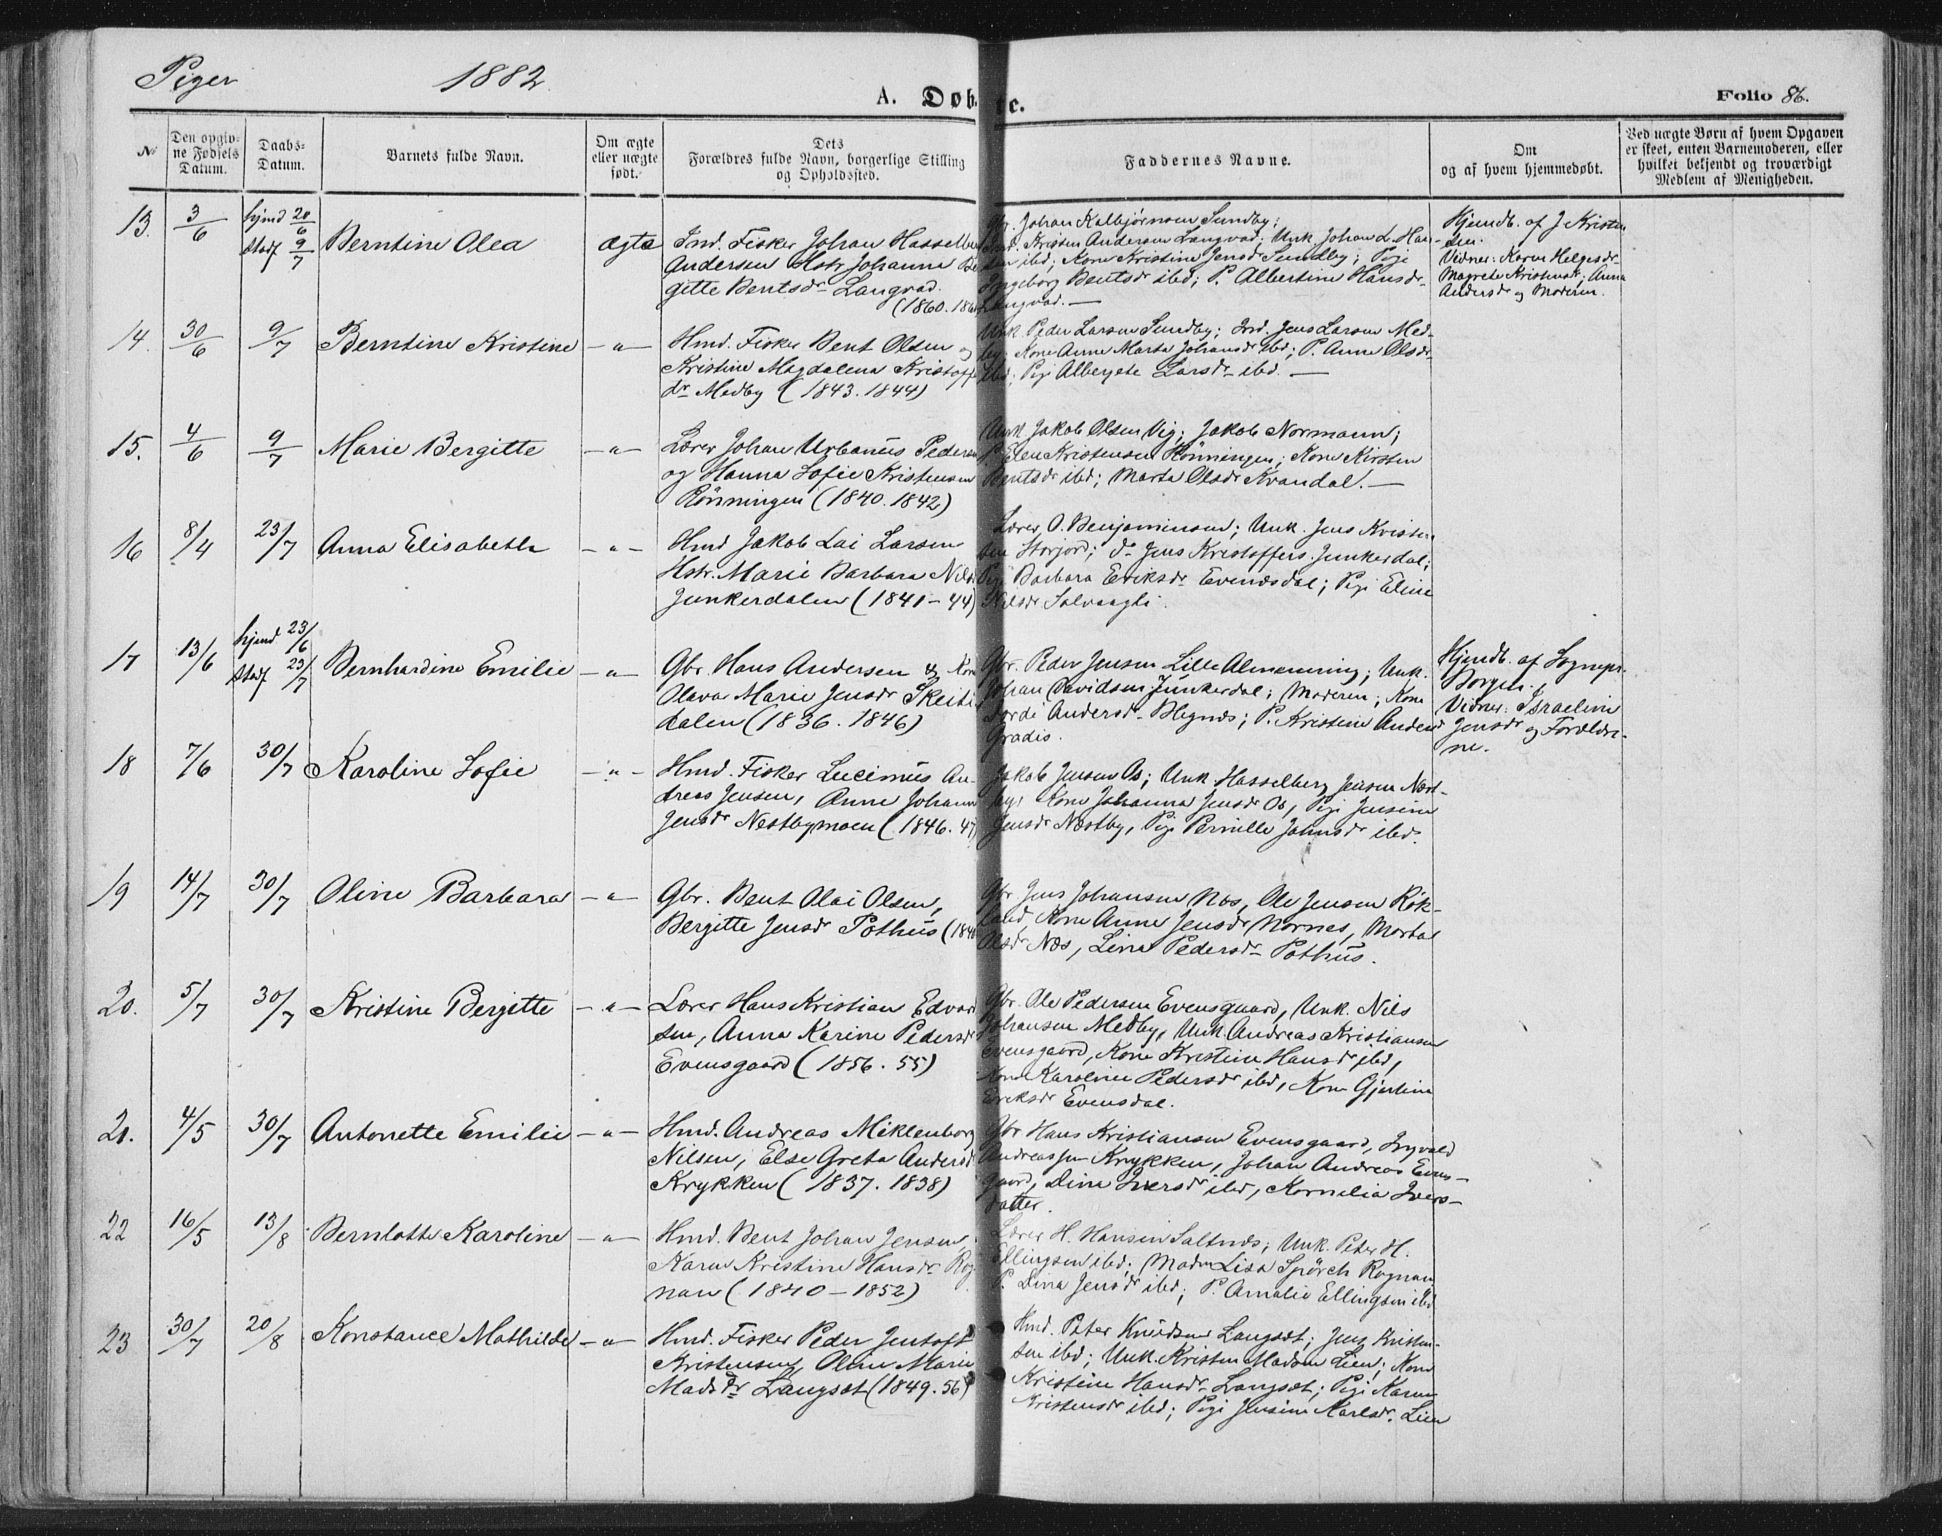 Piger 1882
A. Døbte. Folio 86.
№ Den opgivne Fødsels Datum. Daabs-Datum. Barnets fulde Navn. Om ægte eller uægte født. Dets Forældres fulde Navn, borgerlige Stilling og Opholdssted. Faddernes Navne. Om og af hvem hjemmedøbt. Ved uægte Børn af hvem Opgaven er skeet, enten Barnemoderen, eller hvilket bekjendt og troværdigt Medlem af Menigheden.
13. 3/6 hjmd 20/6 stadf 9/7 Berntine Olea ægte
Ind. Fisker Johan Hasselb
Andersen Hstr Johanna Be
gitte Bentsdr Langvad.
(1860. 186
Gbr. Johan Kalbjørnsen Sundby;
Ind. Kristen Andersen Langvad; Unk. Johan L. Han-
sen ibd; Kone Kristine Jensdr Sundby; Pige
Ingeborg Bentsdr ibd; P. Albertine Hansdr
Langvad. —
Hjemdb. af J Kristen
sen.
Vidner: Karen Helgesdr
Magrete Kristensdr, Anna
Andersdr og Moderen.
14. 30/6 9/7 Berntine Kristine – " –
Hmd. Fisker Bent Olsen og
Kristine Magdalena Kristoff
dr Medby (1843. 1844)
Unk Peder Larsen Sundby; Ind. Jens Larsen Med-
by; Kone Anne Marta Johansdr ibd; P. Anne Olsdr
ibd; Pige Albergete Larsdr ibd. —
15. 4/6 9/7 Marie Bergitte – " –
Lærer Johan Urbanus Peders
og Hanna Sofie Kristensen
Rönningen (1840. 1842)
Unk. Jakob Olsen Vig; Jakob Normann;
P. Elen Kristensen Rönningen; Kone Kirsten
Bentsdr ibd; Marta Olsdr Kvandal. —
16 8/4 23/7 Anna Elisabeth – " –
Hmd Jakob Lai Larsen
Hstr. Marie Barbara Nilsd
Junkerdalen (1841 – 44)
Lærer O. Benjaminsen; Unk. Jens Kristen
sen Storjord; do Jens Kristoffers. Junkerdal;
Pige Barbara Eriksdr Evensdal; Pige Eline
Nilsdr Solvaagli.
17 13/6 hjmd 23/6 stadf 23/7 Bernhardine Emilie – " –
Gbr. Hans Andersen & Kone
Olava Marie Jensdr Skeiti
dalen (1836. 1846)
Gbr. Peder Jensen Lille Almenning; Unk.
Johan Davidsen Junkerdal; Moderen; Kone
Andersdr P. Kristine Anders
Gradis.
Hjemdb. af Sognepr.
Borgen.
Vidner: Israeline
Jensdr og Forældre-
ne.
18 7/6 30/7 Karoline Sofie – " –
Hmd. Fisker Lucimus An-
dreas Jensen, Anne Johann
Jensdr Nestbymoen (1846. 47)
Jakob Jensen Os; Unk. Hasselberg Jensen Næst-
by, Kone Johanna Jensdr Os, Pige Jensine
Jensdr Næstby, Pige Pernille Johnsdr ibd.
19 14/7 30/7 Oline Barbara – " –
Gbr. Bent Olai Olsen,
Bergitte Jensdr Pothus (1840
Gbr Jens Johansen Næs, Ole Jensen Røk-
land, Kone Anne Jensdr Nornes, Marta
Olsdr Næs, Lina Pedersdr Pothus.
20. 5/7 30/7 Kristine Bergitte – " –
Lærer Hans Kristian Edvard
sen, Anna Karine Pedersdr
Evensgaard (1856. 55)
Gbr. Ole Pedersen Evensgaard, Unk. Nils
Johansen Medby, Unk Andreas Kristiansen
Evensgaard, Kone Kristine Hansdr ibd,
Kone Karoline Pedersdr ibd, Kone Gjertine
Eriksdr Evensdal.
21. 4/5 30/7 Antonette Emilie – " –
Hmd. Andreas Meklenborg
Nilsen, Else Greta Andersd
Krykken (1837. 1838)
Gbr Hans Kristiansen Evensgaard, Ingvald
Andreassen Krykken, Johan Andreas Evens-
gaard, Dine Iversdr ibd, Kornelia Ivers-
datter.
22 16/5 13/8 Bernlotte Karoline – " –
Hmd. Bent Johan Jensen
Karen Kristine Hansdr Rog
nan (1840 – 1852)
Lærer H. Hansen Saltnes; Unk. Peter H.
Ellingsen ibd; Madm Lisa Spörch Rognan
P. Dina Jensdr ibd; P. Amalie Ellingsen ibd
23 30/7 20/8 Konstance Mathilde – " –
Hmd. Fisker Peder Jentoft
Kristensen, Oline Marie
Madsdr Langset (1849. 56)
Hmd. Peter Knudsen Langset; Jens Kristen-
sen ibd; Unk. Kristen Madsen Lien; Kone
Kristine Hansdr Langset; Pige Karen
Kristensdr ibd; Pige Jensine Karlsdr. Lien